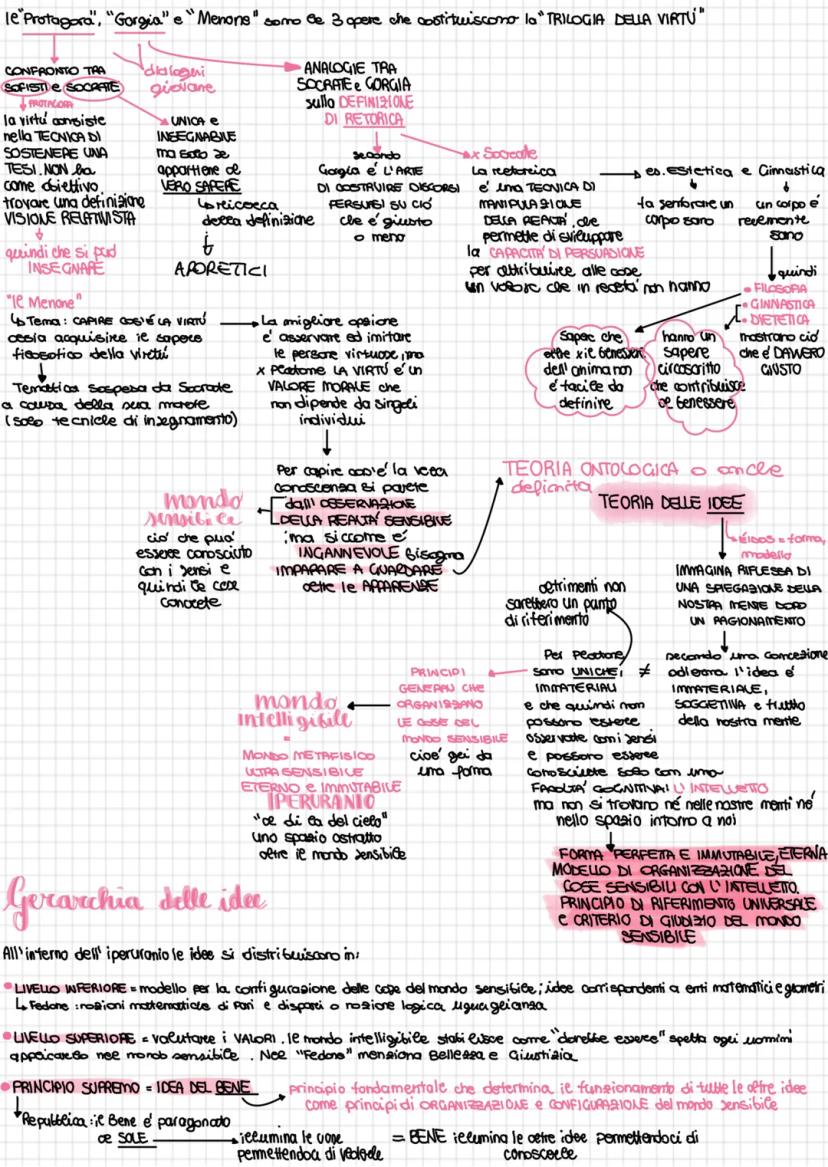 Il "Protagora", "Gorgia" e "Menone" sono le 3 opere che costituiscono la "TRILOGIA DELLA VIRTÚ"
CONFRONTO TRA
SOFISTI e SOCRATE
dialoghi
giovane
PROTAGORA
la virtú consiste
nella TECNICA DI
SOSTENERE UNA
TESI. NON ha
come obiettivo
trovare una definizione
VISIONE RELATIVISTA
quindi che si può
INSEGNARE
UNICA e
INSEGNABILE
ma solo se
appartiene al
VERO SAPERE
ricerca
della definizione
APORETICI
ANALOGIE TRA
SOCRATE e GORGIA
sulla DEFINIZIONE
DI RETORICA
secondo
Gorgia é L'ARTE
DI COSTRUIRE DISCORSI
PERSUASI SU CIÓ
che é giusto
o meno
x Socrate
La retorica
é una TECNICA DI
MANIPOLAZIONE
DELLA REALTÁ, che
permette di sviluppare
la CAPACITÁ DI PERSUASIONE
per attribuire alle cose
un valore che in realtá non hanno
es. Estetica e Ginnastica
fa sembrare un
corpo sano
un corpo é
realmente
sano
quindi
• FILOSOFIA
• GINNASTICA
• DIETETICA
mostrano ció
che é DAVVERO
GIUSTO
Sapere che
oltre x il benessere
dell'anima non
é facile da
definire
hanno un
sapere
circoscritto
che contribuisce
al benessere
"Il Menone"
Tema: CAPIRE COS'É LA VIRTÚ
ossia acquisire il sapere
filosofico della virtú
Tematica sospesa da Socrate
a causa della sua morte
(solo tecniche di insegnamento)
La migliore opzione
é osservare ed imitare
le persone virtuose, ma
x Platone LA VIRTÚ é un
VALORE MORALE che
non dipende da singoli
individui
Per capire cos'é la vera
conoscenza si parte
dall'OSSERVAZIONE
DELLA REALTÁ SENSIBILE
, ma siccome é
INGANNEVOLE bisogna
IMPARARE A GUARDARE
oltre le APPARENZE
mondo
sensibile
ció che puó
essere conosciuto
con i sensi e
quindi le cose
concrete
TEORIA ONTOLOGICA o anche
definita
TEORIA DELLE IDEE
éidos = forma,
modello
IMMAGINA RIFLESSA DI
UNA SPIEGAZIONE DELLA
NOSTRA MENTE DOPO
UN RAGIONAMENTO
secondo una concezione
odierna l'idea é
IMMATERIALE,
SOGGETTIVA e frutto
della nostra mente
≠
altrimenti non
sarebbero un punto
di riferimento
Per Platone
sono UNICHE,
IMMATERIALI
e che quindi non
possono essere
osservate con i sensi
e possono essere
conosciute solo con una
FACOLTÁ COGNITIVA: L'INTELLETTO
ma non si trovano né nelle nostre menti né
nello spazio intorno a noi
PRINCIPI
GENERALI CHE
ORGANIZZANO
LE COSE DEL
MONDO SENSIBILE
cioé gli da
una forma
mondo
intelligibile
=
MONDO METAFISICO
ULTRASENSIBILE
ETERNO e IMMUTABILE
IPERURANIO
"al di la del cielo"
uno spazio astratto
oltre il mondo sensibile
FORMA PERFETTA E IMMUTABILE, ETERNA
MODELLO DI ORGANIZZAZIONE DEL
COSE SENSIBILI CON L'INTELLETTO.
PRINCIPIO DI RIFERIMENTO UNIVERSALE
e CRITERIO DI GIUDIZIO DEL MONDO
SENSIBILE
Gerarchia delle idee
All'interno dell'iperuranio le idee si distribuiscono in:
• LIVELLO INFERIORE = modello per la configurazione delle cose del mondo sensibile; idee corrispondenti a enti matematici e geometri
Fedone: nozioni matematiche di Pari e dispari o nozione logica uguaglianza
• LIVELLO SUPERIORE = valutare i VALORI. Il mondo intelligibile stabilisce come "dovrebbe essere" spetta agli uomini
applicarlo nel mondo sensibile. Nel "Fedone" menziona Bellezza e Giustizia
• PRINCIPIO SUPREMO = IDEA DEL BENE
principio fondamentale che determina il funzionamento di tutte le altre idee
come principi di ORGANIZZAZIONE e CONFIGURAZIONE del mondo sensibile
Repubblica: il Bene é paragonato
al SOLE
illumina le cose
permettendoci di vederle
= BENE illumina le altre idee permettendoci di
conoscerle